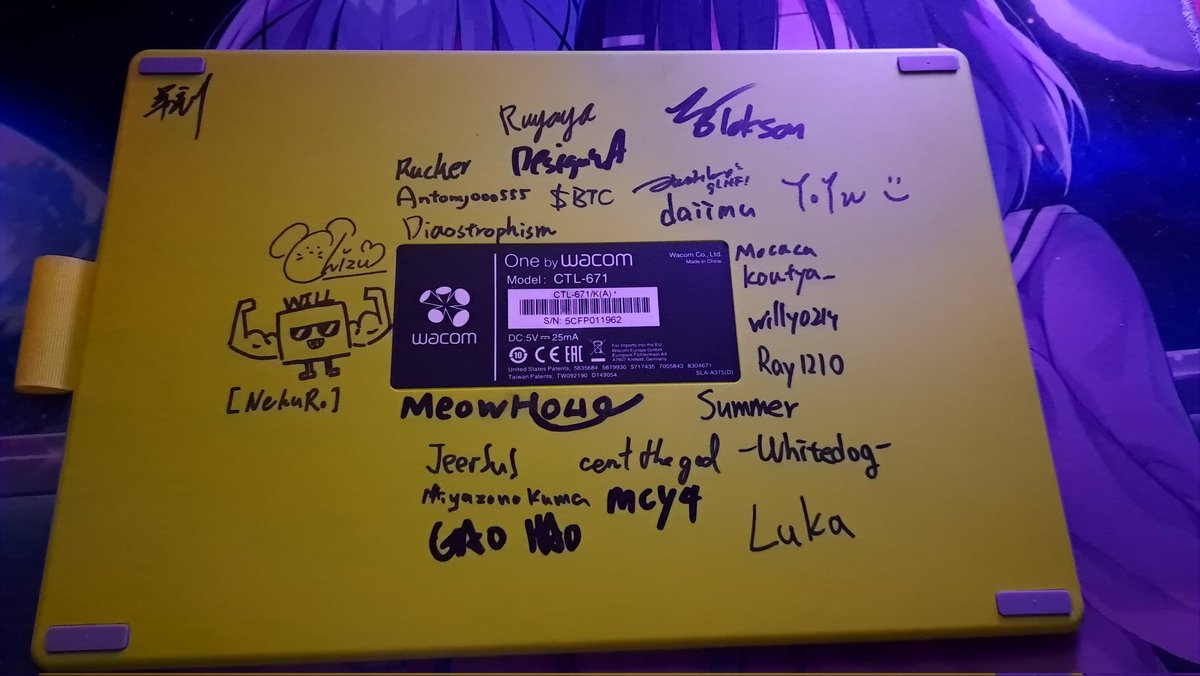 Ruyaya
Rucker
DesignerA
Antonyooo555
$BTC
GLHF!
daiimu
YoYw :)
Diaostrophism
Mizu
WILL
[NekuR.]
Mocaca
koutya_
willy0214
Ray1210
One by wacom
Model: CTL-671
Wacom Co., Ltd.
Made in China
CTL-671/K(A)*
S/N: 5CFP011962
wacom
DC:5V⎓25mA
10 CE EAC
For imports into the EU
Wacom Europe GmbH
Europark Fichtenhain A9
47807 Krefeld, Germany
United States Patents; 5635684 5679930 5717435 7005843 8304671
Taiwan Patents; TW092190 D149054
SLA-A375(D)
MeowHoug
Summer
Jeersus
centthegod
-Whitedog-
Miyazono Kuma
MCY4
GAO HAO
Luka